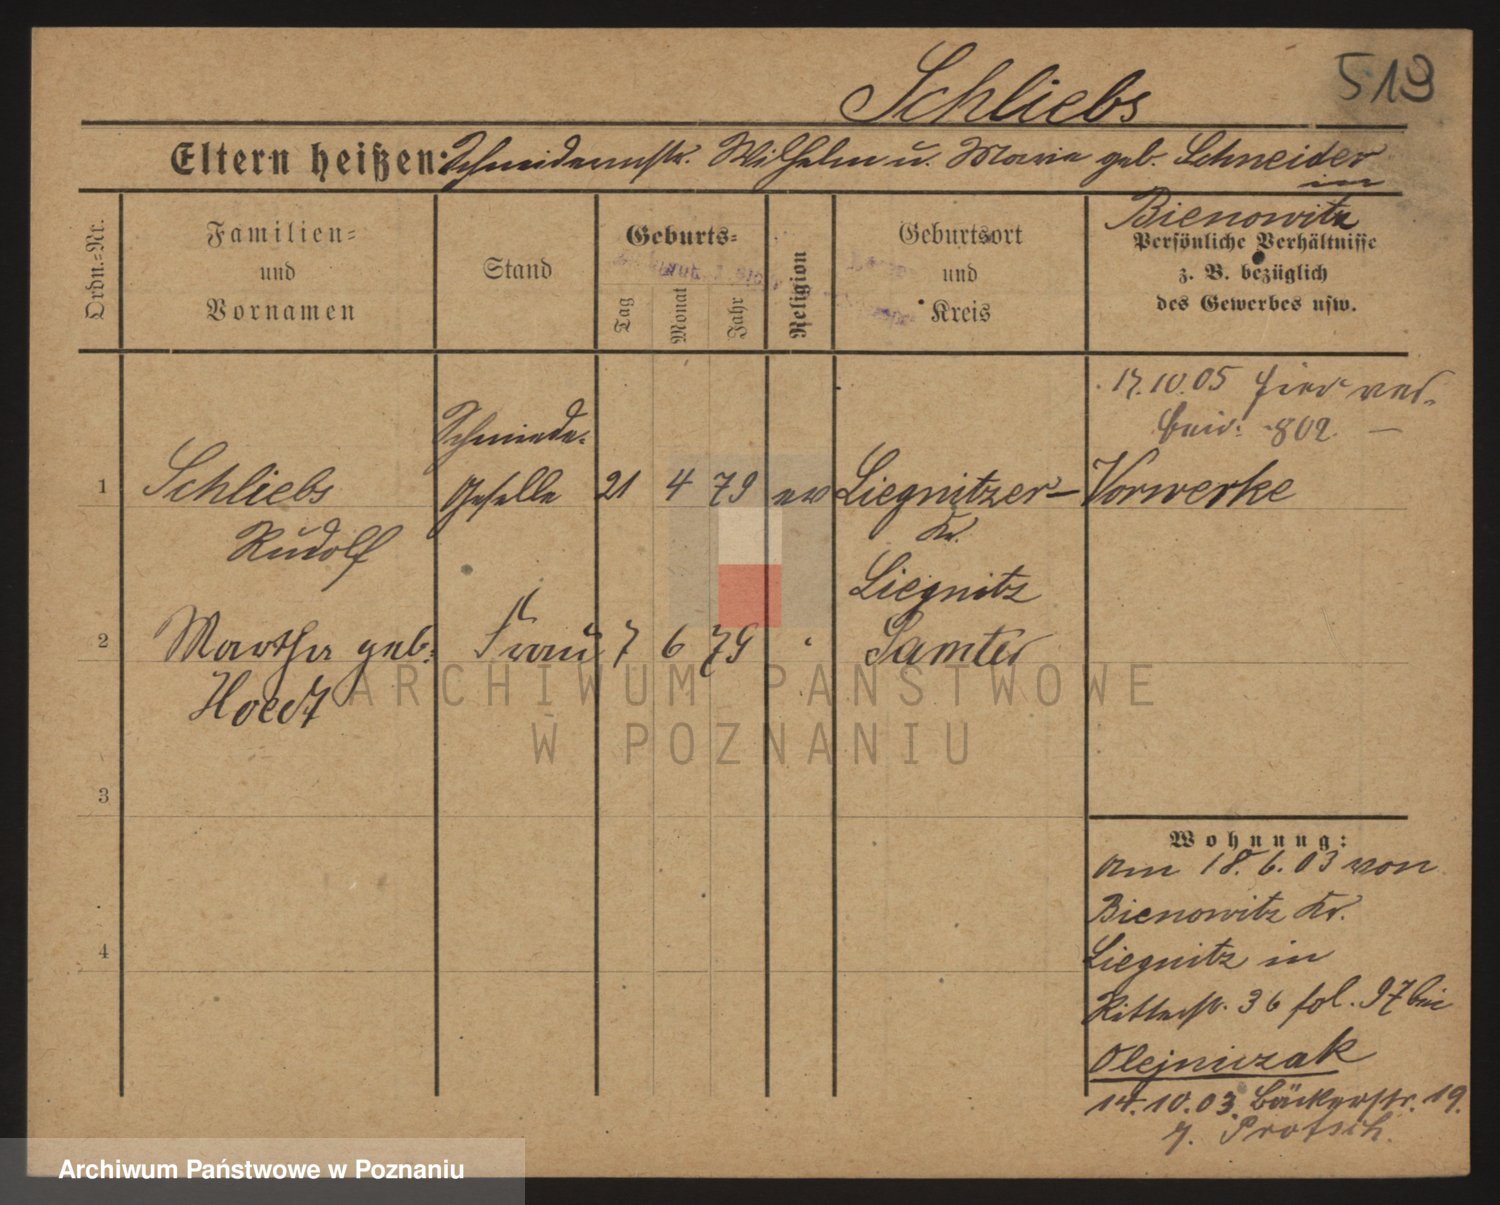 519
Schliebs
Eltern heißen: Schmiedemstr. Wilhelm u. Marie geb. Schneider
in
Bienowitz
Ordn.-Nr.
Familien-
und
Vornamen
Stand
Geburts-
Tag
Monat
Jahr
Religion
Geburtsort
und
Kreis
Persönliche Verhältnisse
z. B. bezüglich
des Gewerbes usw.
17.10.05 hier ver-
heir. 802. —
1 Schliebs Schmiede- Geselle 21 4 79 ev Liegnitzer- Vorwerke
Rudolf Kr.
Liegnitz
2 Martha geb. Frau 7 6 79 " Samter
Hoedt
3
4
Wohnung:
am 18.6.03 von
Bienowitz Kr.
Liegnitz in
Ritterstr. 36 fol. 97 bei
Olejniczak
14.10.03. Bäckerstr. 19.
Protsch.
ARCHIWUM PAŃSTWOWE
W POZNANIU
Archiwum Państwowe w Poznaniu